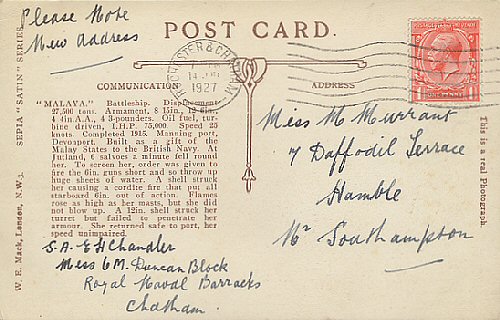 Please Note
New Address
POST CARD.
ROCHESTER & CHATHAM
14 JUL
1927
COMMUNICATION
ADDRESS
"MALAYA." Battleship. Displacement
27,500 tons. Armament, 8 15in., 12 6in.,
4 4in. A.A., 4 3-pounders. Oil fuel, tur-
bine driven, I.H.P. 75,000. Speed 25
knots. Completed 1915. Manning port,
Devonport. Built as a gift of the
Malay States to the British Navy. At
Jutland, 6 salvoes a minute fell round
her. To screen her, order was given to
fire the 6in. guns short and so throw up
huge sheets of water. A shell struck
her causing a cordite fire that put all
starboard 6in. out of action. Flames
rose as high as her masts, but she did
not blow up. A 12in. shell struck her
turret but failed to penetrate her
armour. She returned safe to port, her
speed unimpaired.
S.A. E H Chandler
Mess 6 M. Duncan Block
Royal Naval Barracks
Chatham.
Miss M Murrant
7 Daffodil Terrace
Hamble
Nr Southampton
SEPIA "SATIN" SERIES
W. E. Mack, London, N.W.3.
This is a real Photograph.